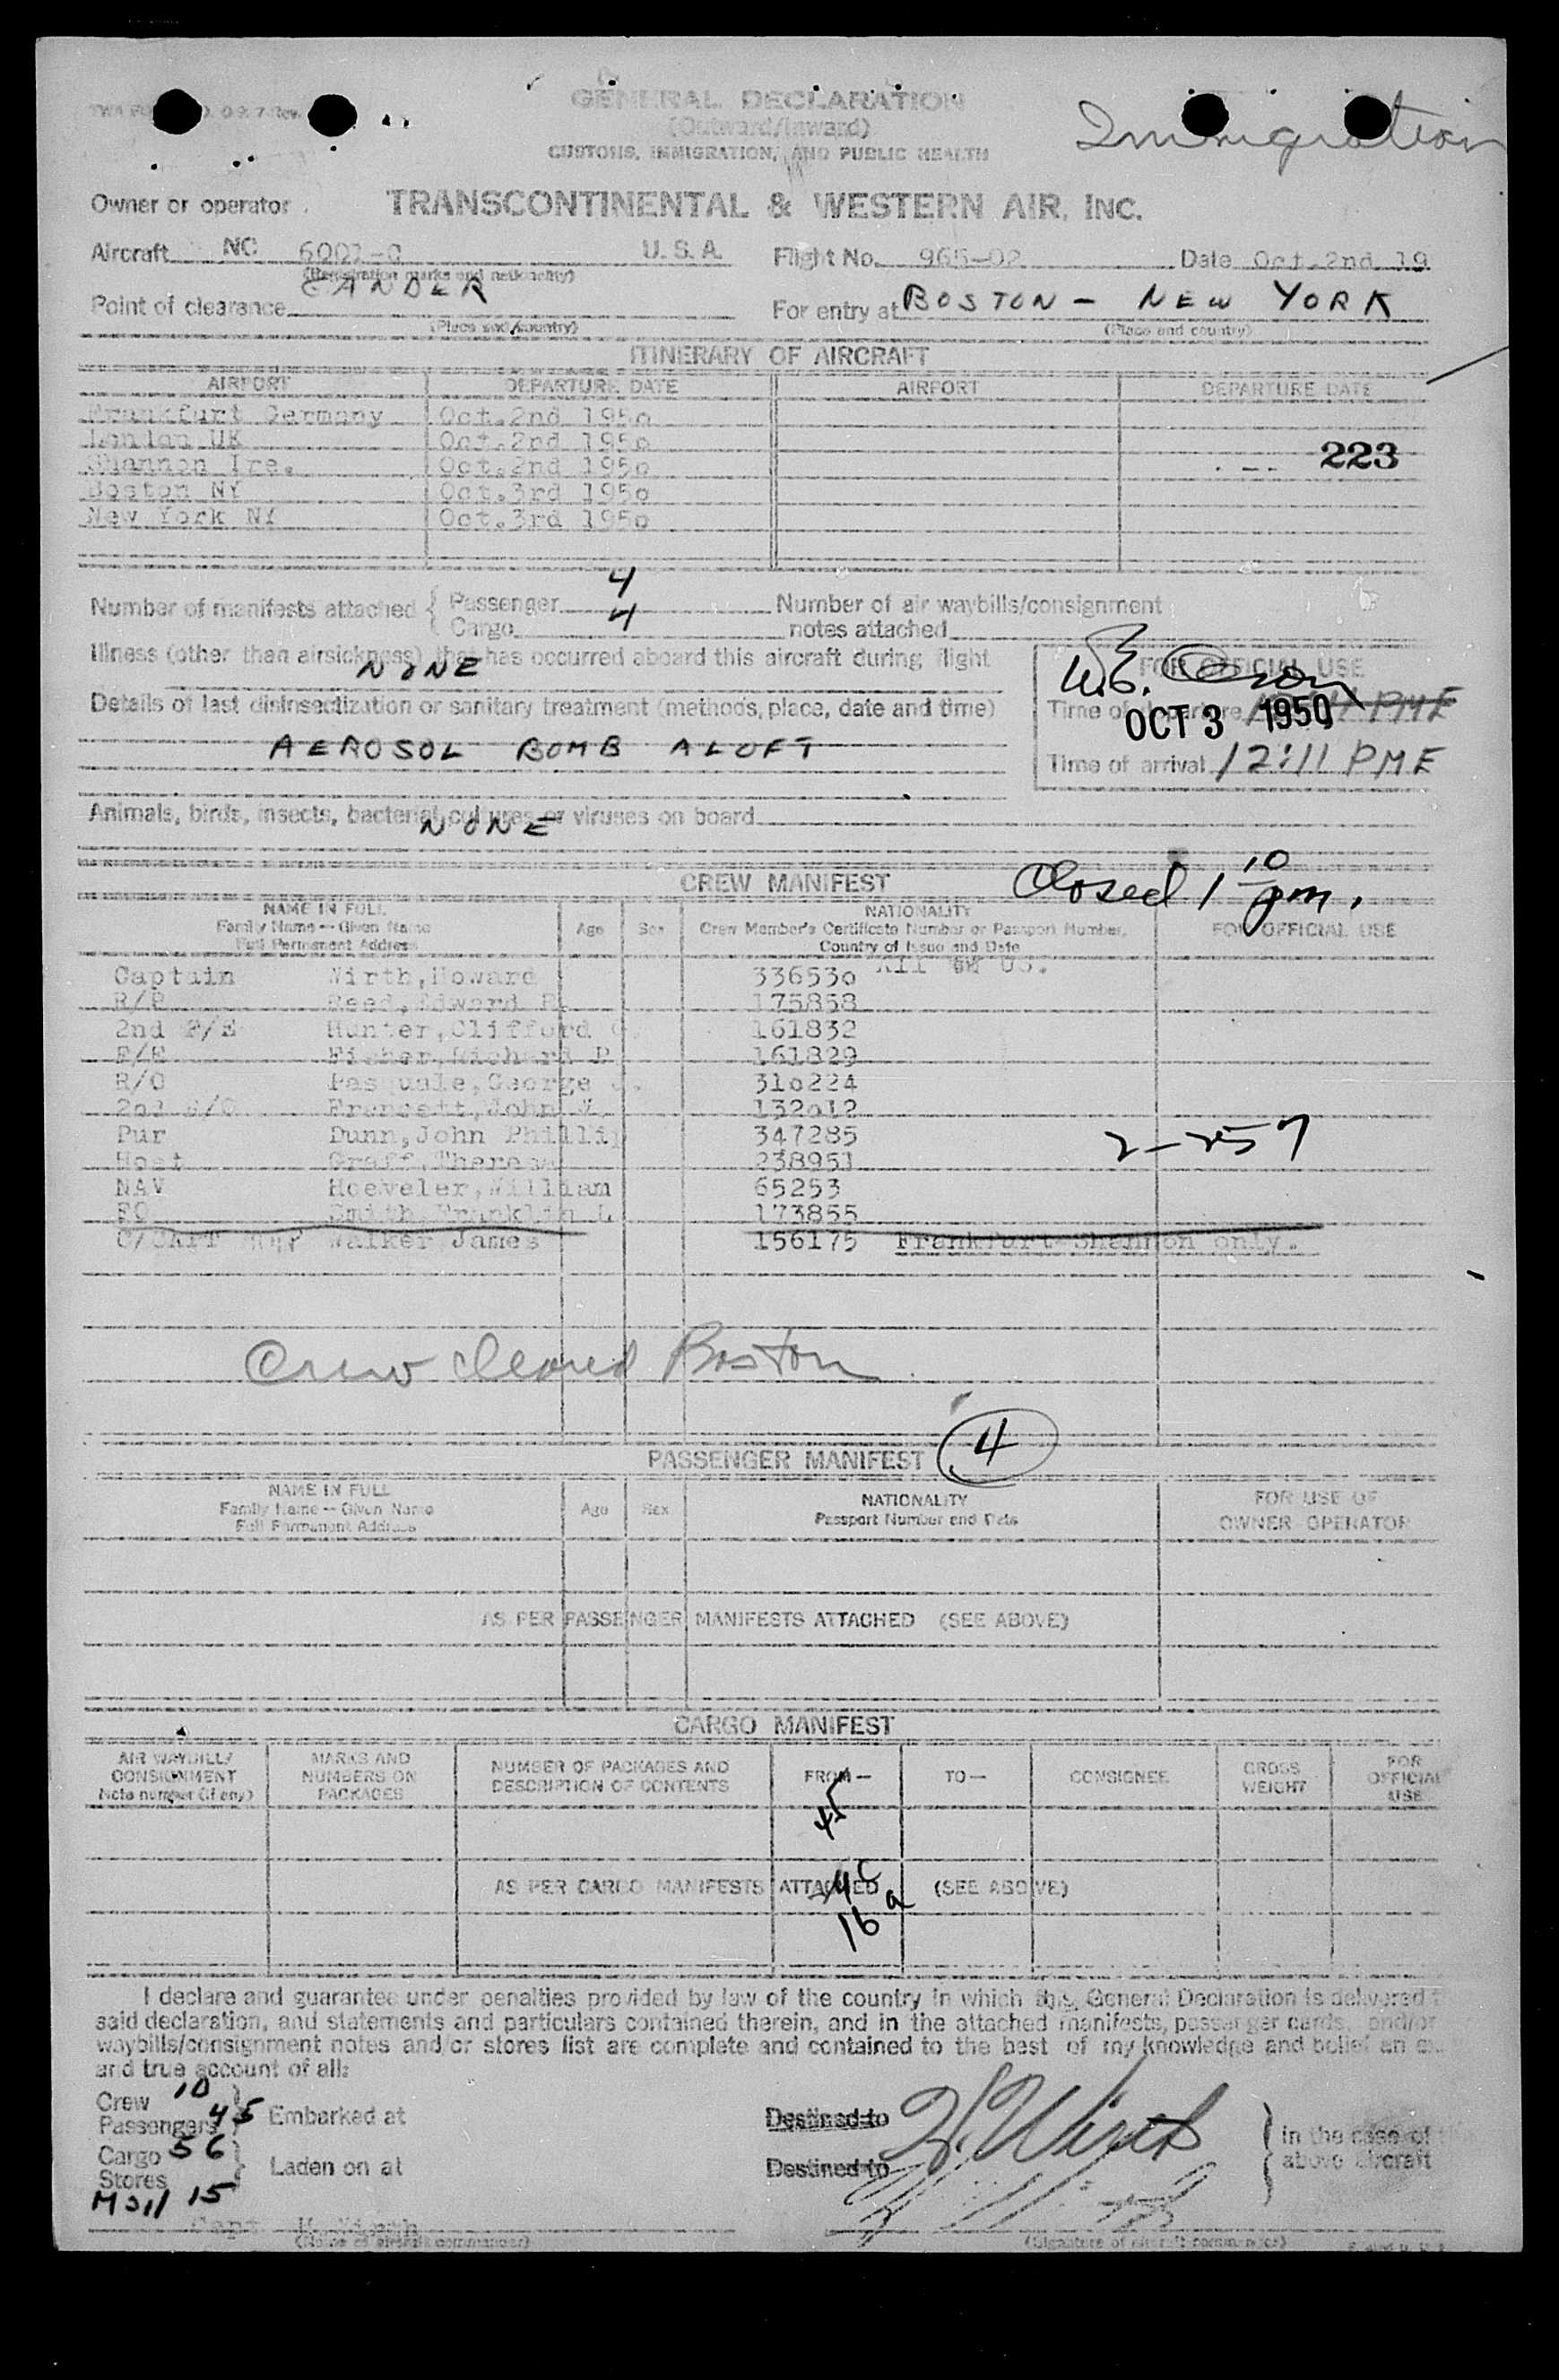 GENERAL DECLARATION
(Outward/Inward)
CUSTOMS, IMMIGRATION, AND PUBLIC HEALTH
Immigration
Owner or operator TRANSCONTINENTAL & WESTERN AIR, INC.
Aircraft NC U.S.A. Flight No. 965-02 Date Oct.2nd 19
(Registration marks and nationality)
Point of clearance GANDER For entry at BOSTON - NEW YORK
(Place and country) (Place and country)
ITINERARY OF AIRCRAFT
AIRPORT DEPARTURE DATE AIRPORT DEPARTURE DATE
Frankfurt Germany Oct.2nd 195o
London UK Oct.2nd 195o 223
Shannon Ire. Oct.2nd 195o
Boston NY Oct.3rd 195o
New York NY Oct.3rd 195o
Number of manifests attached { Passenger 4 Number of air waybills/consignment
Cargo 4 notes attached
Illness (other than airsickness) that has occurred aboard this aircraft during flight
NONE
FOR OFFICIAL USE
W.E.
Details of last disinsectization or sanitary treatment (methods, place, date and time)
Time of departure PME
OCT 3 1950
AEROSOL BOMB ALOFT
Time of arrival 12:11 PME
Animals, birds, insects, bacterial cultures or viruses on board
NONE
CREW MANIFEST Closed 1 10 pm.
NAME IN FULL NATIONALITY
Family Name -- Given Name Age Sex Crew Member's Certificate Number or Passport Number, FOR OFFICIAL USE
Full Permanent Address Country of Issue and Date
All US.
Captain Wirth,Howard 33653o
Reed,Edward 175858
2nd Hunter,Clifford 161832
Fisher,Richard P 161829
R/O Pasquale,George 31o224
2nd John 132o12
Pur Dunn,John Phillip 347285 2-257
Host Graff,Theresa 238951
NAV Hoeveler,William 65253
Smith,Franklin L 173855
Walker James 156175 Frankfurt-Shannon only.
Crew cleared Boston
PASSENGER MANIFEST 4
NAME IN FULL NATIONALITY FOR USE OF
Family Name -- Given Name Age Sex Passport Number and Date OWNER OPERATOR
Full Permanent Address
AS PER PASSENGER MANIFESTS ATTACHED (SEE ABOVE)
CARGO MANIFEST
AIR WAYBILL/ MARKS AND NUMBER OF PACKAGES AND FROM— TO— CONSIGNEE GROSS FOR
CONSIGNMENT NUMBERS ON DESCRIPTION OF CONTENTS WEIGHT OFFICIAL
Note number (if any) PACKAGES USE
45
AS PER CARGO MANIFESTS ATTACHED (SEE ABOVE)
4 c
16 a
I declare and guarantee under penalties provided by law of the country in which this General Declaration is delivered
said declaration, and statements and particulars contained therein, and in the attached manifests, passenger cards, and/or
waybills/consignment notes and/or stores list are complete and contained to the best of my knowledge and belief an
and true account of all:
Crew 10
Passengers 45 } Embarked at Destined to H. Wirth } in the case of
Cargo 56
Stores } Laden on at Destined to above aircraft
Mail 15
Capt H.Wirth
(Name of aircraft commander) (Signature of aircraft commander)